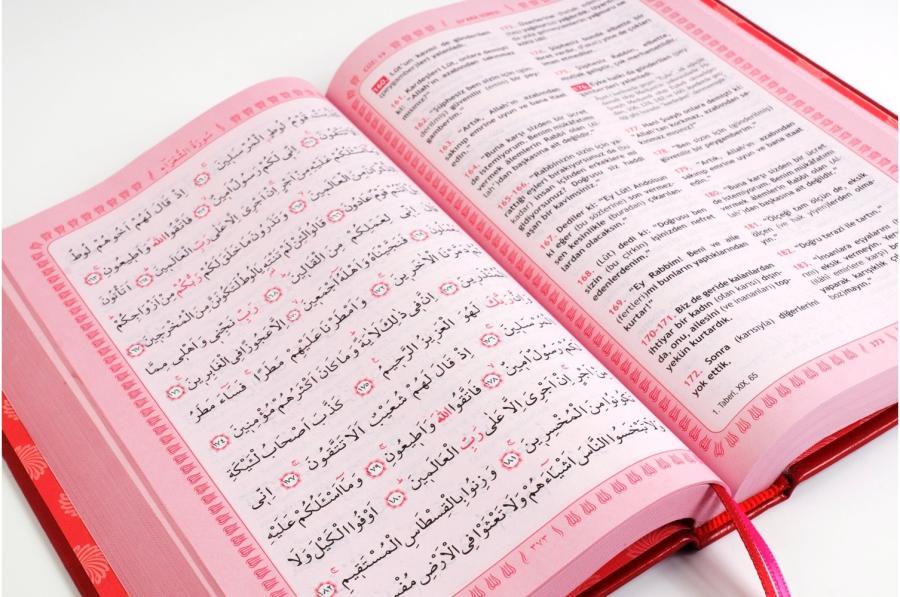 سُورَةُ الشُّعَرَاءِ
قَوْمُ لُوطٍ الْمُرْسَلِينَ ١٦٠ اِذْ قَالَ لَهُمْ اَخُوهُمْ لُوطٌ
اِنِّي لَكُمْ رَسُولٌ اَمِينٌ ١٦٢ فَاتَّقُوا اللّٰهَ وَاَطِيعُونِ ١٦٣
عَلَيْهِ مِنْ اَجْرٍ اِنْ اَجْرِيَ اِلَّا عَلٰى رَبِّ الْعَالَمِينَ ١٦٤ اَتَأْتُونَ
مِنَ الْعَالَمِينَ ١٦٥ وَتَذَرُونَ مَا خَلَقَ لَكُمْ رَبُّكُمْ مِنْ اَزْوَاجِكُمْ
قَوْمٌ عَادُونَ ١٦٦ قَالُوا لَئِنْ لَمْ تَنْتَهِ يَا لُوطُ لَتَكُونَنَّ مِنَ الْمُخْرَجِينَ ١٦٧
اِنِّي لِعَمَلِكُمْ مِنَ الْقَالِينَ ١٦٨ رَبِّ نَجِّنِي وَاَهْلِي مِمَّا
فَنَجَّيْنَاهُ وَاَهْلَهُ اَجْمَعِينَ ١٧٠ اِلَّا عَجُوزًا فِي الْغَابِرِينَ ١٧١
دَمَّرْنَا الْاٰخَرِينَ ١٧٢ وَاَمْطَرْنَا عَلَيْهِمْ مَطَرًا فَسَاءَ مَطَرُ
١٧٣ اِنَّ فِي ذٰلِكَ لَاٰيَةً وَمَا كَانَ اَكْثَرُهُمْ مُؤْمِنِينَ ١٧٤
لَهُوَ الْعَزِيزُ الرَّحِيمُ ١٧٥ كَذَّبَ اَصْحَابُ لْـَٔيْكَةِ
١٧٦ اِذْ قَالَ لَهُمْ شُعَيْبٌ اَلَا تَتَّقُونَ ١٧٧ اِنِّي
لَكُمْ رَسُولٌ اَمِينٌ ١٧٨ فَاتَّقُوا اللّٰهَ وَاَطِيعُونِ ١٧٩ وَمَا اَسْـَٔلُكُمْ عَلَيْهِ
مِنْ اَجْرٍ اِنْ اَجْرِيَ اِلَّا عَلٰى رَبِّ الْعَالَمِينَ ١٨٠ اَوْفُوا الْكَيْلَ وَلَا
تَكُونُوا مِنَ الْمُخْسِرِينَ ١٨١ وَزِنُوا بِالْقِسْطَاسِ الْمُسْتَقِيمِ ١٨٢
وَلَا تَبْخَسُوا النَّاسَ اَشْيَاءَهُمْ وَلَا تَعْثَوْا فِي الْاَرْضِ
٣٧٣
CÜZ: 19
160. Lût'un kavmi de gönderilen
(peygamber)leri yalanladı.
161. Kardeşleri Lût, onlara demişti
ki: "Allah'ın azabından sakınmaz
mısınız?"
162. "Şüphesiz ben sizin için (gön-
derilmiş) güvenilir (emin) bir pey-
gamberim."
163. "Artık, Allah'ın azabından
sakınıp emrine uyun ve bana itaat
edin."
164. "Buna karşı sizden bir ücret
de istemiyorum. Benim mükâfatımı
vermek âlemlerin Rabbi olan (Al-
lah')dan başkasına ait değildir."
165-166. "Rabbinizin sizin için ya-
rattığı eşleri bırakıyorsunuz da (ya-
kadın) insan içinden erkeklere mi
gidiyorsunuz? Doğrusu siz haddi
aşan bir kavimsiniz."
167. Dediler ki: "Ey Lût! Andolsun
ki eğer (bu sözlerine) son vermez-
sen kesinlikle (buradan) çıkarılan-
lardan olacaksın."
168. (Lût) dedi ki: "Doğrusu ben
sizin bu (çirkin) işinizden nefret
edenlerdenim."
169. "Ey Rabbim! Beni ve aile
(fertleri)mi bunların yaptıklarından
kurtar!"
170-171. Biz de geride kalanlardan
ihtiyar bir kadın (olan karısı) dışın-
da, onu, ailesini (ve inananları) top-
yekün kurtardık.
172. Sonra (karısıyla) diğerlerini
yok ettik.
1. Taberî, XIX, 65
174. Şüphesiz bunda elbette bir
ibret vardır,
175. Şüphesiz Rabbin, elbette,
176. Eyke halkı da gönderilen (pey-
gamber)leri yalanladı.
177. Hani Şuayb onlara demişti ki:
"Allah'tan korkmaz, azabından sa-
kınmaz mısınız?"
178. "Ben sizin için (gönderilmiş)
güvenilir bir peygamberim."
179. "Artık, Allah'ın azabından
sakınıp emrine uyun ve bana itaat
edin."
180. "Buna karşı sizden bir ücret
de istemiyorum. Benim mükâfatımı
vermek âlemlerin Rabbi olan (Al-
lah')dan başkasına ait değildir."
181. "Ölçeği tam ölçün de, eksik
ölçen (ve hak yiyen)lerden olma-
yın."
182. "Doğru terazi ile tartın."
183. "İnsanlara eşyalarını
eksik vermeyin, Yer
(ilâhî emirlere karşı
yaparak karışıklık
bozmayın."
373